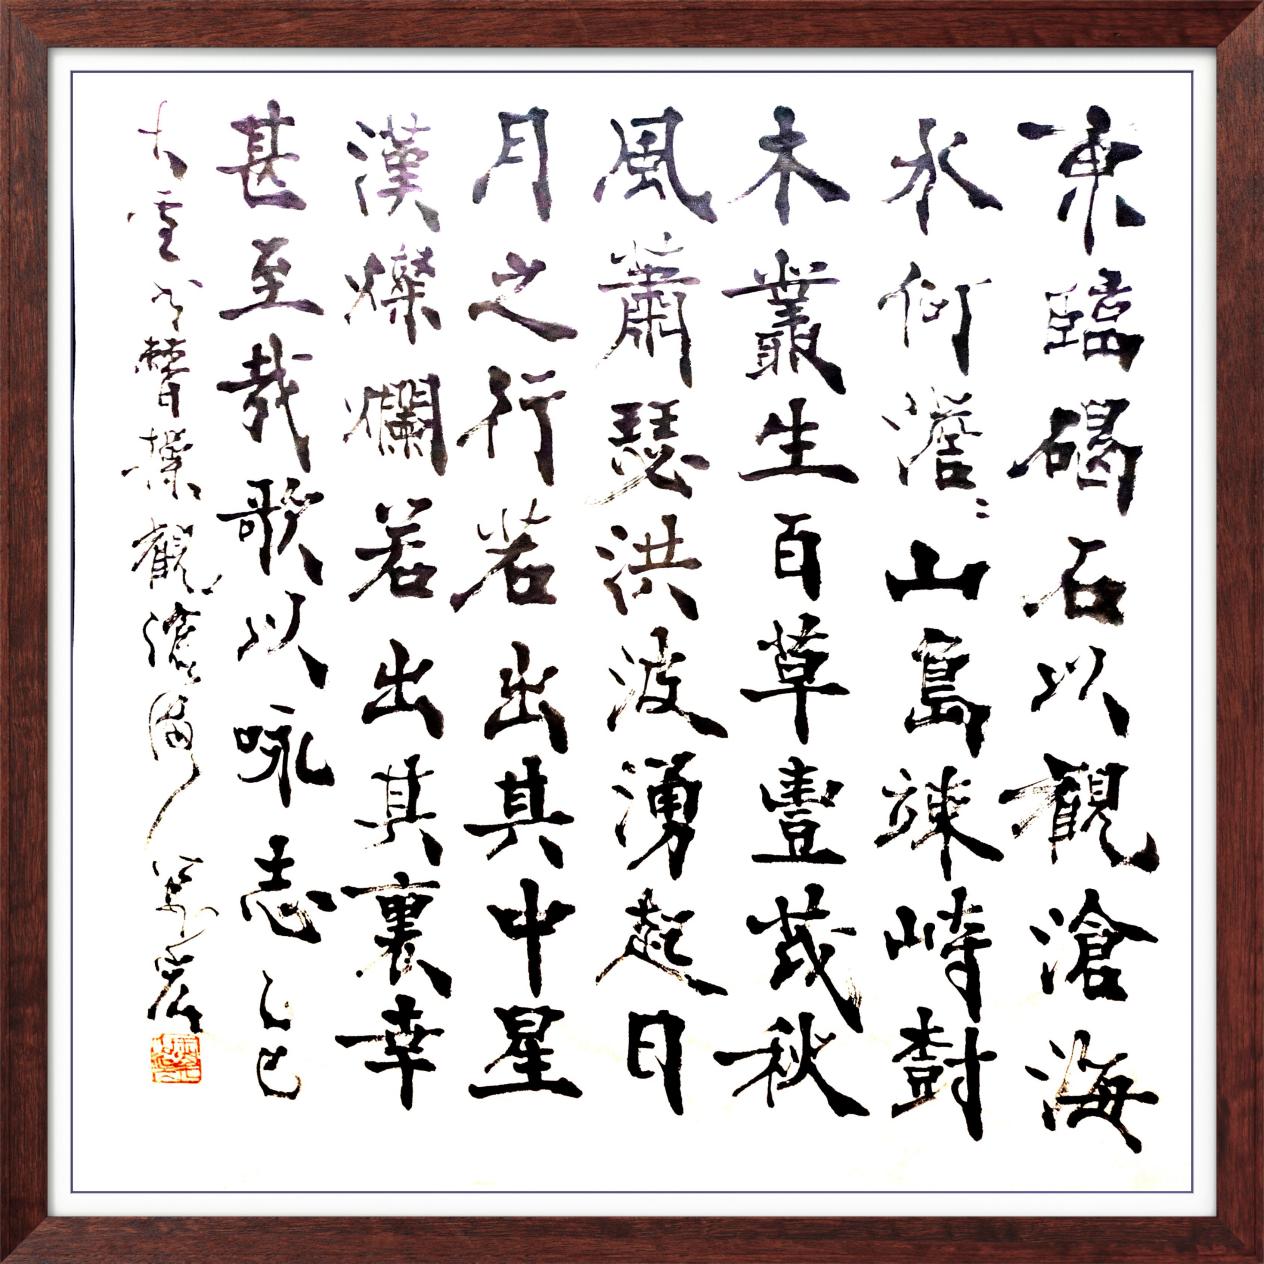 東臨碣石以觀滄海
水何澹〻山島竦峙樹
木叢生百草豐茂秋
風蕭瑟洪波湧起日
月之行若出其中星
漢燦爛若出其裏幸
甚至哉歌以咏志乙巳
大雪曹操觀滄海